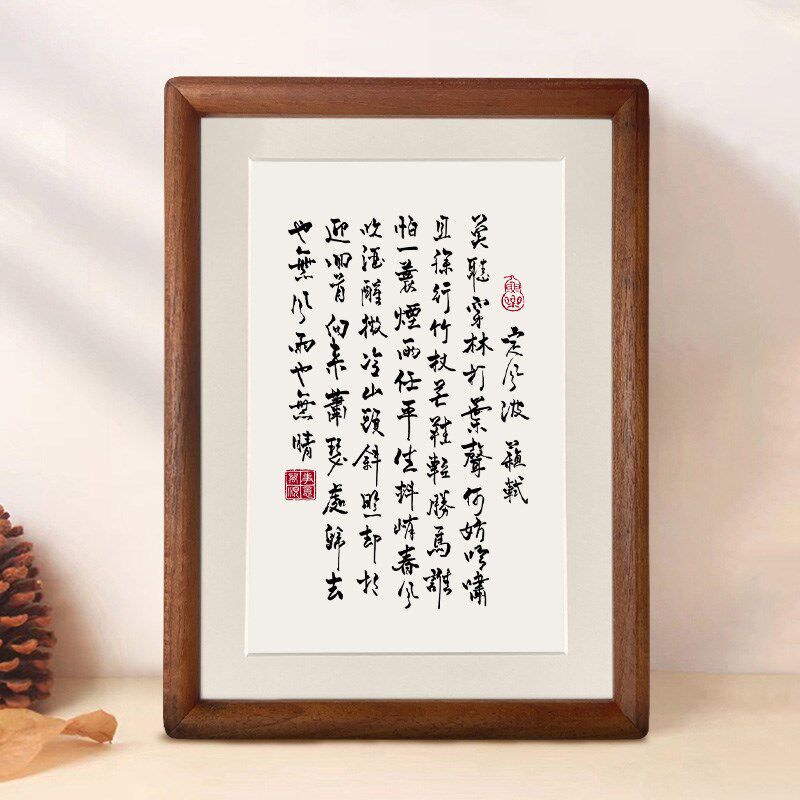 定風波 蘇軾
莫聽穿林打葉聲何妨吟嘯
且徐行竹杖芒鞋輕勝馬誰
怕一蓑煙雨任平生料峭春風
吹酒醒微冷山頭斜照却相
迎回首向來蕭瑟處歸去
也無風雨也無晴